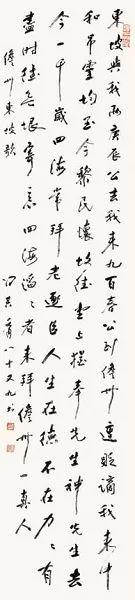 東坡與我兩庚辰公去我來九百春公到儋州遭貶謫我來中
和吊靈均至今黎民懷故德堂上猶奉先生神先生去
今一千歲四海常拜老逐臣人生在德不在力々有
盡時德無垠寄言四海滔々者來拜儋州一真人
儋州東坡歌 馮其庸八十又九書